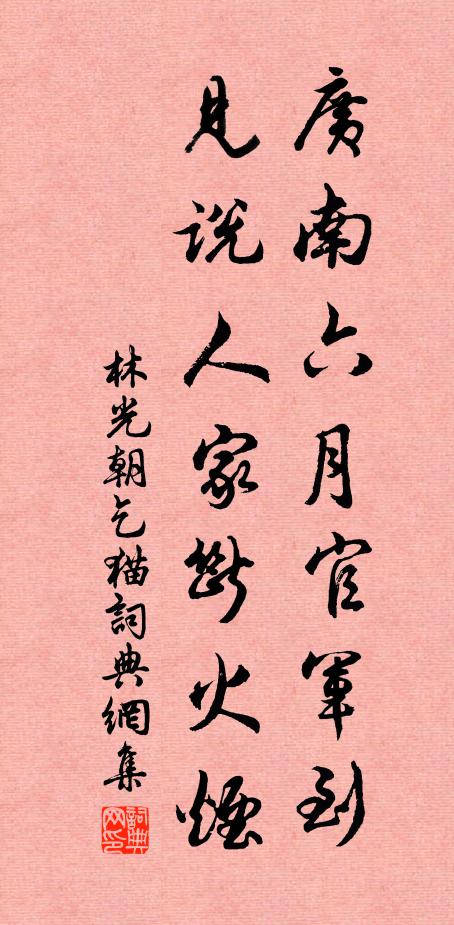 廣南六月官軍到
見說人家斷火煙
林光朝乞猫詞典網集
詞典网印